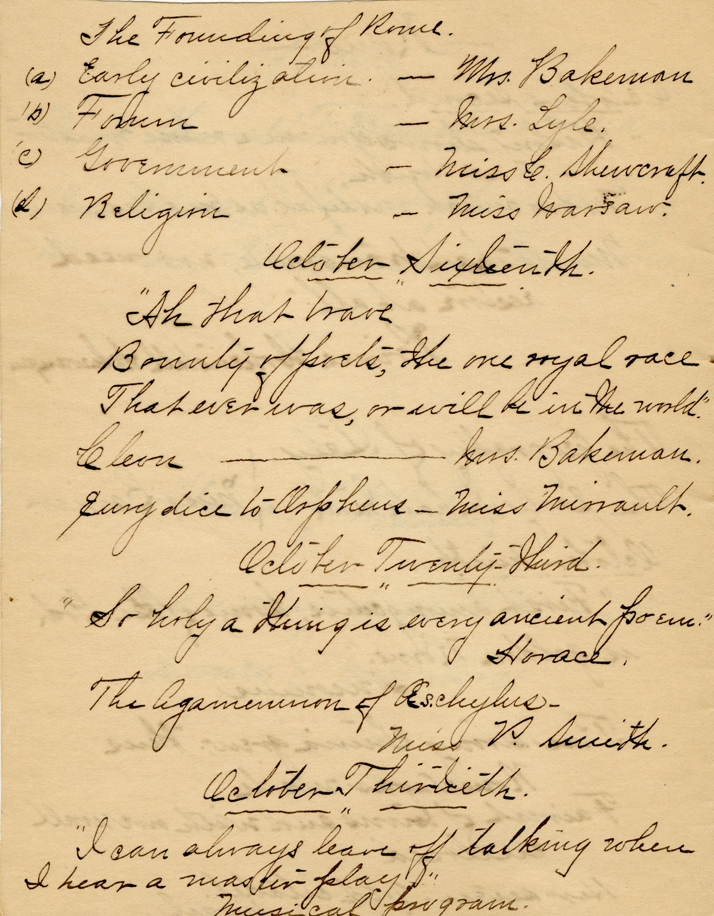 The Founding of Rome.
(a) Early civilization. — Mrs. Bakeman
(b) Forum — Mrs. Lyle.
(c) Government — Miss C. Shewcraft.
(d) Religion — Miss Warsaw.
October Sixteenth.
"Ah that brave
Bounty of poets, the one royal race
That ever was, or will be in the world."
Cleon — Mrs. Bakeman.
Eurydice to Orpheus — Miss Mirrault.
October Twenty-Third.
"So holy a thing is every ancient poem."
Horace.
The Agamemnon of Æschylus—
Miss P. Smith.
October Thirtieth.
"I can always leave off talking when
I hear a master play."
Musical program.